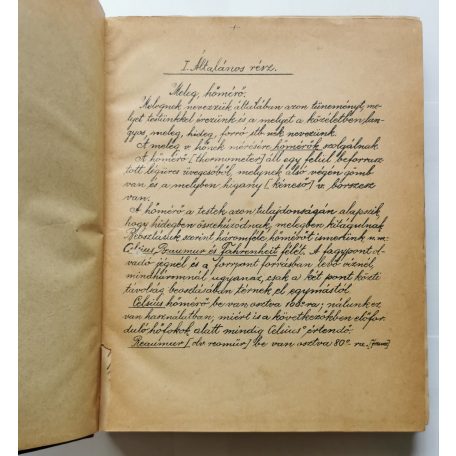 I. Általános rész.
Meleg, hőmérő.
Melegnek nevezzük általában azon tüneményt, me-
lyet testünkkel érezünk és a melyet a közéletben lan-
gyos, meleg, hideg, forró stb.-nek nevezünk.
A meleg v. hőnek mérésére hőmérők szolgálnak.
A hőmérő [thermometer] áll egy felül beforrasz-
tott légüres üvegcsőből, melynek alsó végén gömb
van és a melyben higany [kéneső] v. borszesz
van.
A hőmérő a testek azon tulajdonságán alapszik,
hogy hidegben összehúzódnak, melegben kitágulnak
Beosztásuk szerint háromféle hőmérőt ismerünk u.m.
Celsius Reaumur és Fahrenheit félét. A fagypont ol-
vadó jégnél és a forrpont forrásban levő víznél
mindháromnál ugyanaz, csak a két pont közti
távolság beosztásában térnek el egymástól.
Celsius hőmérő be van osztva 100°ra; nálunk ez
van használatban, miért is a következőkben előfor-
duló hőfokok alatt mindig Celsius° értendő
Reaumur [olv. reomür] be van osztva 80°-ra.